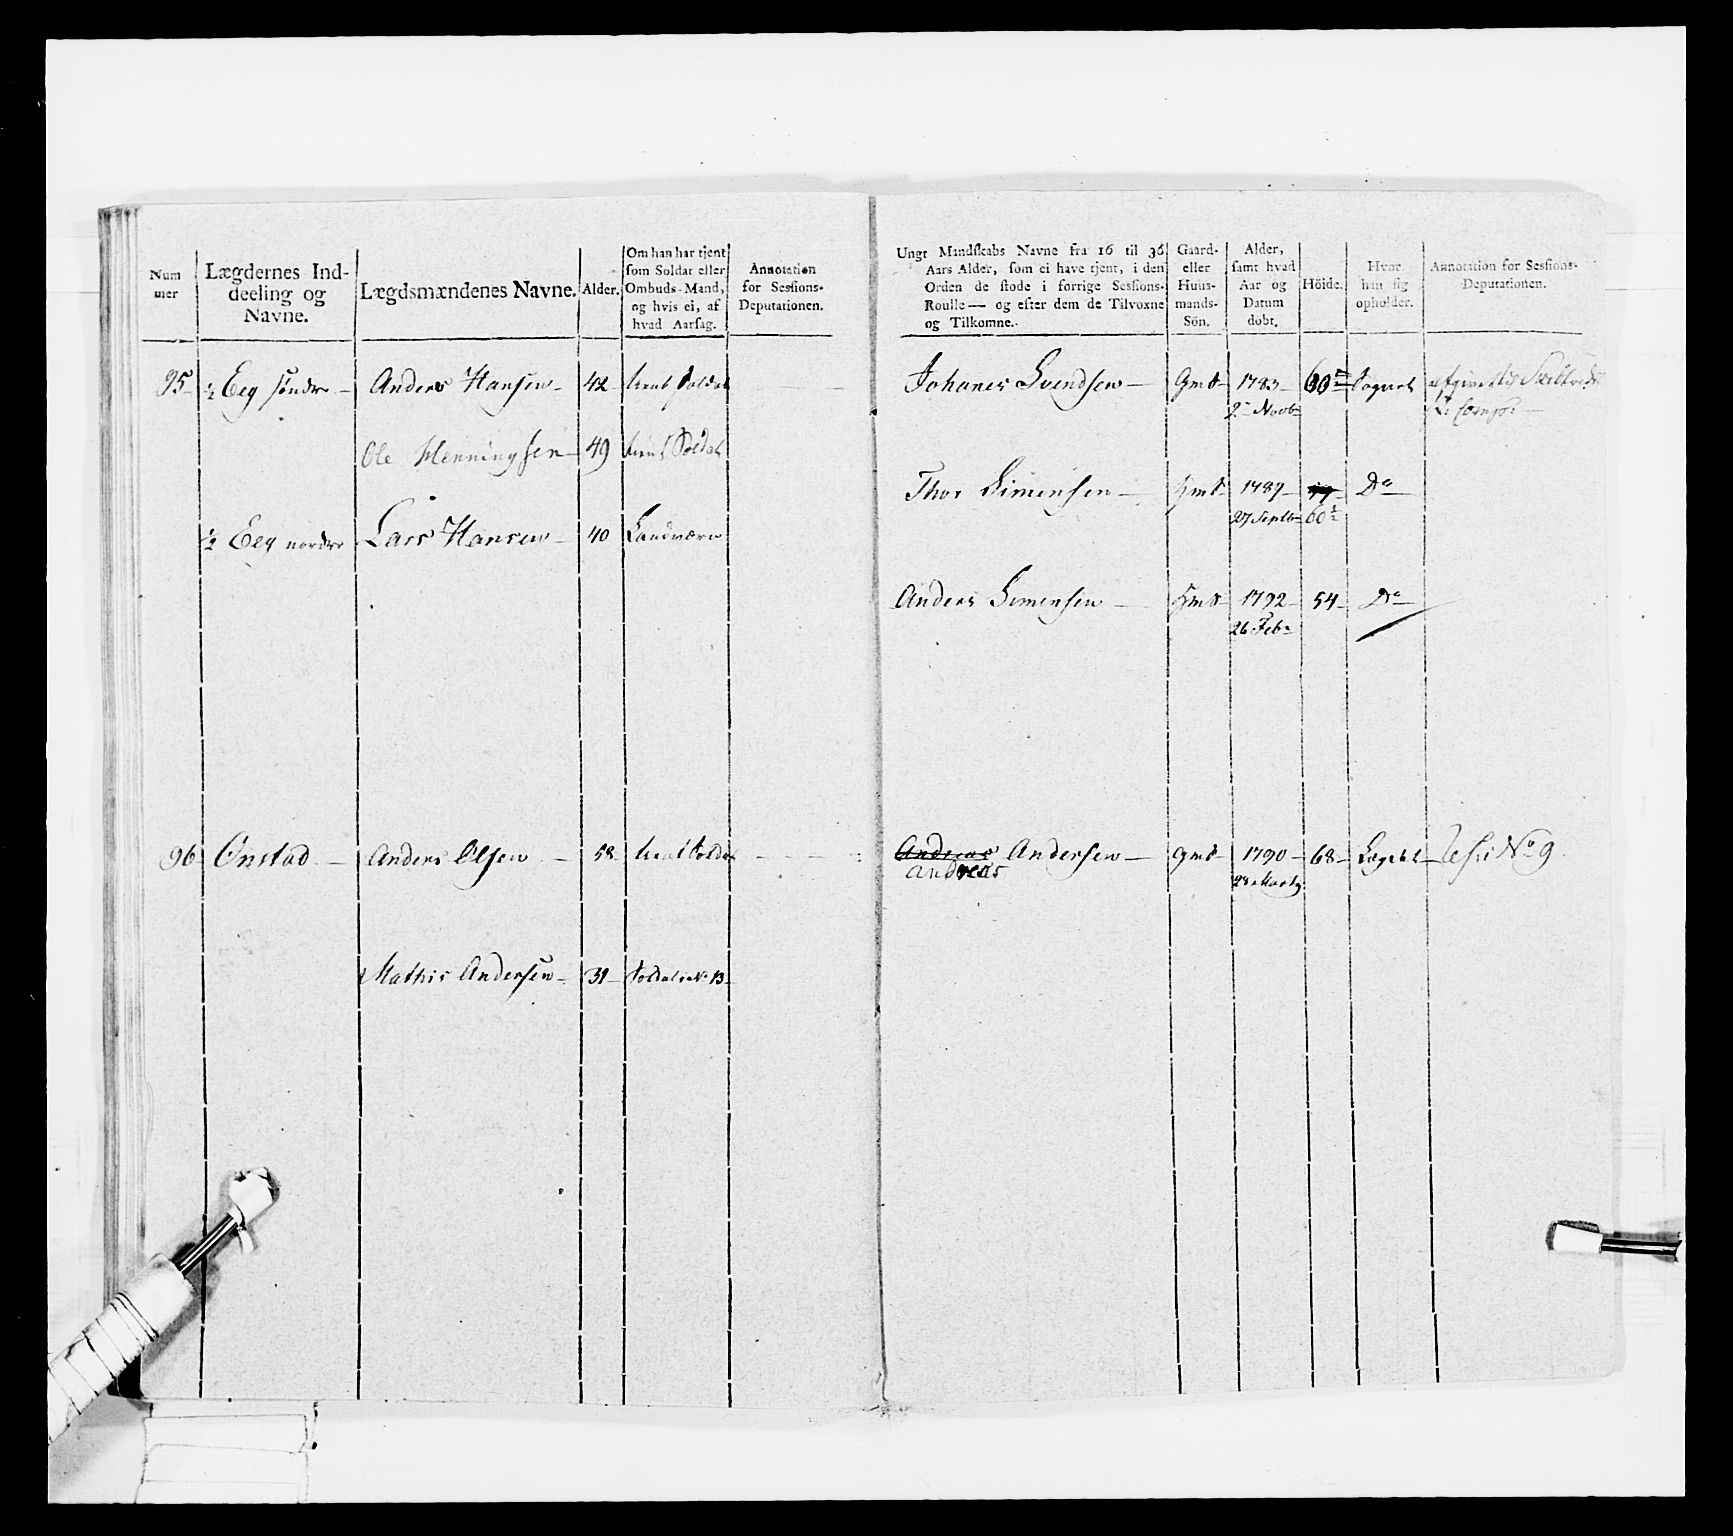 Num
mer
Lægdernes Ind-
deeling og
Navne.
Lægdsmændenes Navne.
Alder.
Om han har tjent
som Soldat eller
Ombuds-Mand,
og hvis ei, af
hvad Aarsag.
Annotation
for Sessions-
Deputationen.
Ungt Mandskabs Navne fra 16 til 36
Aars Alder, som ei have tjent, i den
Orden de stode i forrige Sessions-
Roulle — og efter dem de Tilvoxne
og Tilkomne.
Gaard-
eller
Huus-
mands-
Sön.
Alder,
samt hvad
Aar og
Datum
döbt.
Höide.
Hvor
han sig
opholder.
Annotation for Sessions-
Deputationen.
95 ½ Eeg söndre — Anders Hansen — 42 tient Soldat
Johanes Svendsen — Gmds 1783 — Sognet
2 Novb
Ole Henningsen — 49 tient Soldat
Thor Simensen — Hmds 1787 Do
27 Septb 60
½ Eeg nordre Lars Hansen — 40 Landværn
Anders Simensen — Hmds 1792 — 54 — Do
26 Feb
96 Onstad — Anders Olsen — 58 tient Soldat
Andreas Andersen — Gmds 1790 — 68 — Lægdet — No 9
Andreas
28 Marty
Mathis Andersen — 31 — Soldat i No 13